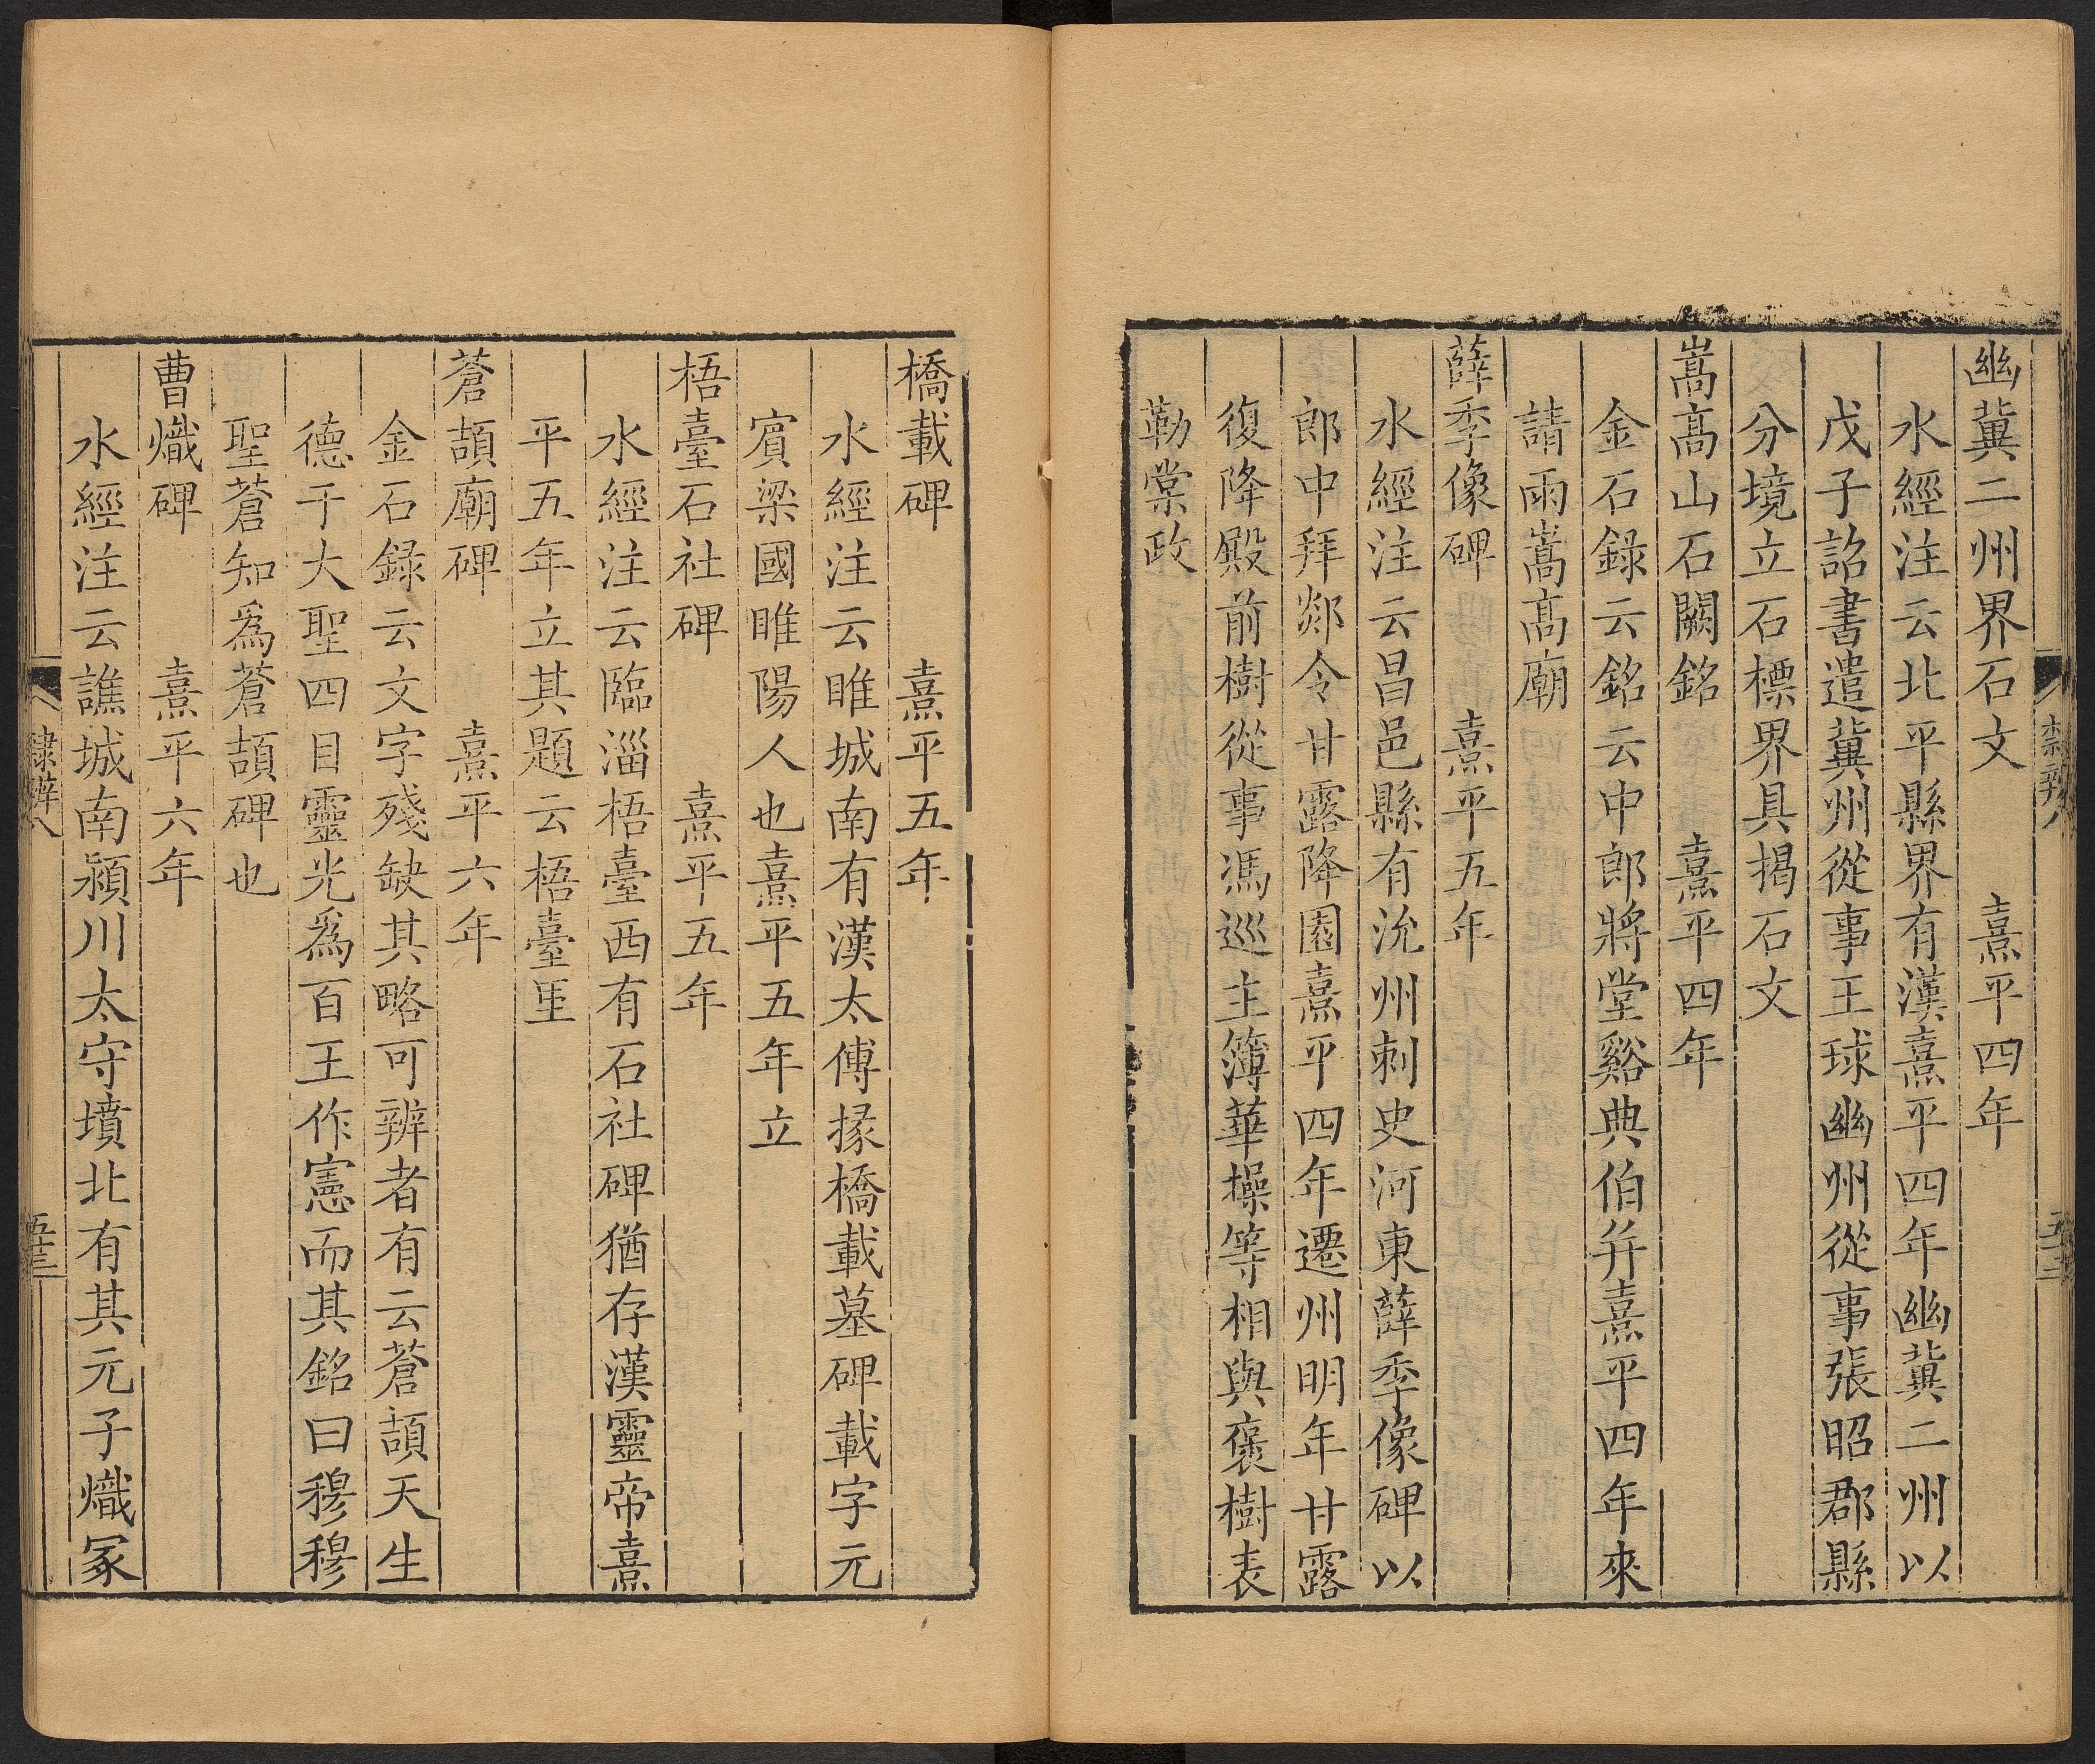 幽冀二州界石文　熹平四年
水經注云北平縣界有漢熹平四年幽冀二州以
戊子詔書遣冀州從事王球幽州從事張昭郡縣
分境立石標界具揭石文
嵩高山石闕銘　熹平四年
金石錄云銘云中郎將堂谿典伯幷熹平四年來
請雨嵩高廟
薛季像碑　熹平五年
水經注云昌邑縣有沇州刺史河東薛季像碑以
郎中拜郯令甘露降園熹平四年遷州明年甘露
復降殿前樹從事馮巡主簿華操等相與褒樹表
勒棠政
橋載碑　熹平五年
水經注云睢城南有漢太傅掾橋載墓碑載字元
賓梁國睢陽人也熹平五年立
梧臺石社碑　熹平五年
水經注云臨淄梧臺西有石社碑猶存漢靈帝熹
平五年立其題云梧臺里
蒼頡廟碑　熹平六年
金石錄云文字殘缺其略可辨者有云蒼頡天生
德于大聖四目靈光爲百王作憲而其銘曰穆穆
聖蒼知爲蒼頡碑也
曹熾碑　熹平六年
水經注云譙城南潁川太守墳北有其元子熾冢
隸辨八